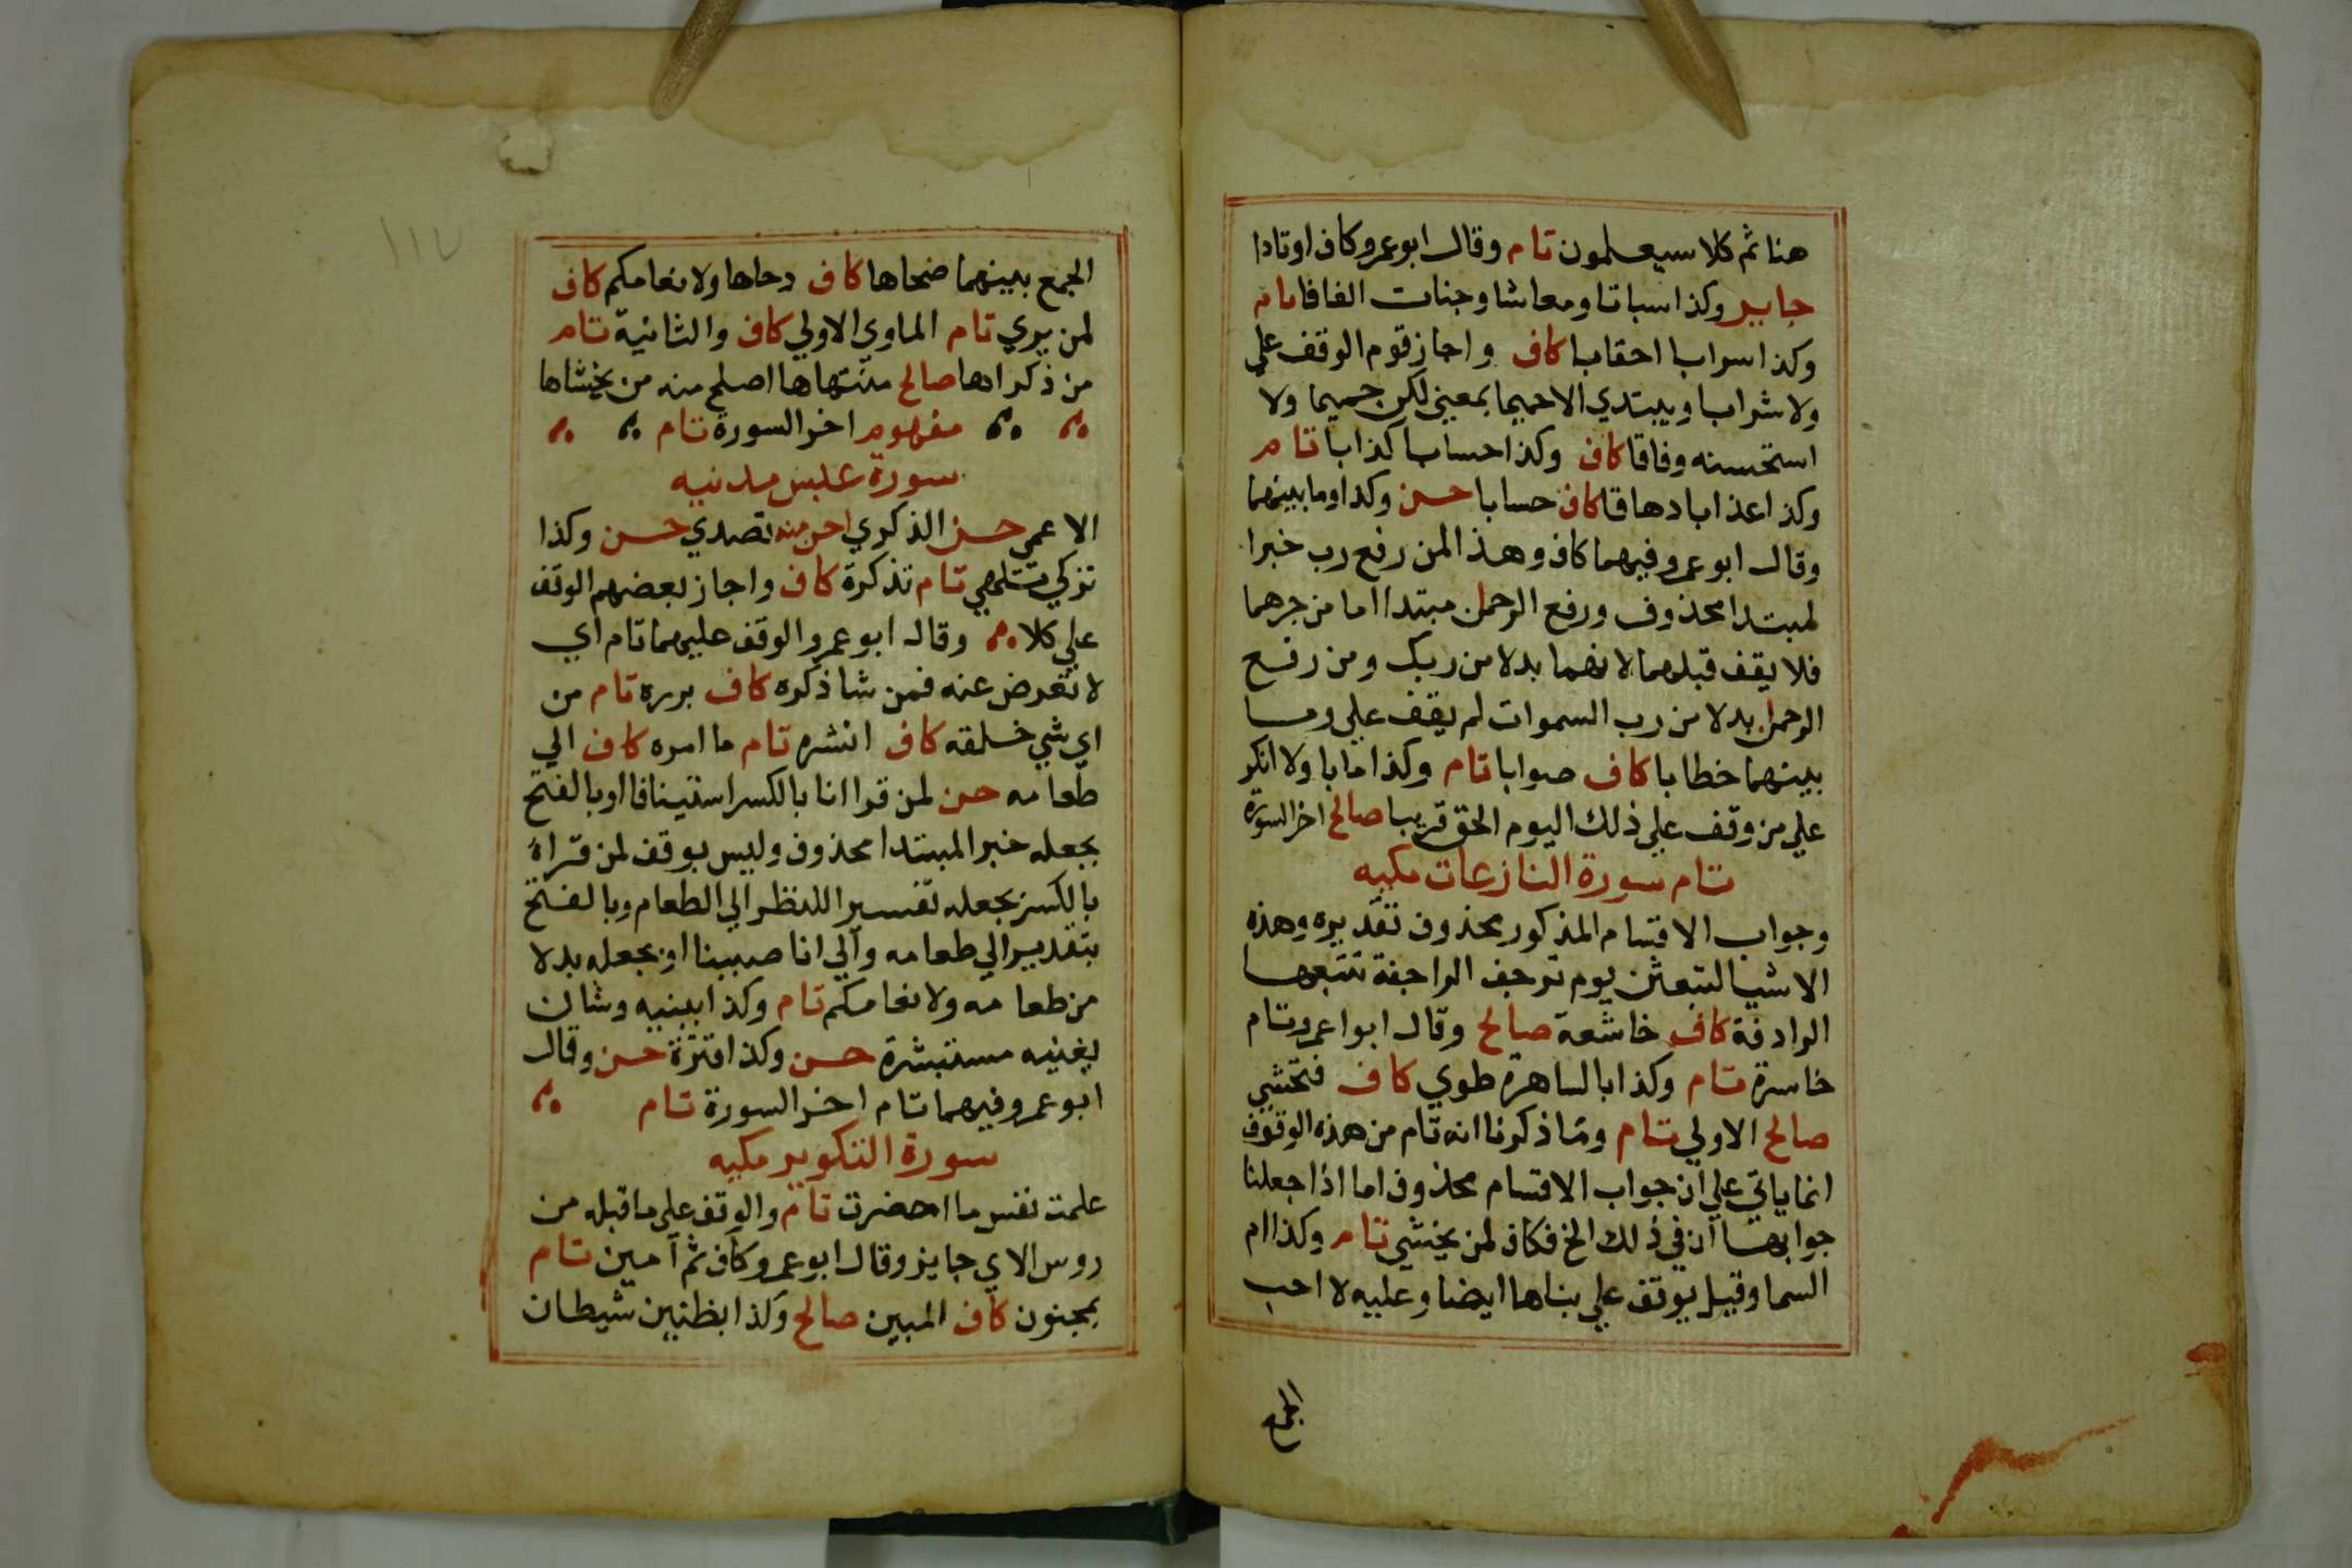 هنا ثم كلا سيعلمون تام وقال ابو عمرو كاف اوتادا
جايز وكذا سباتا ومعاشا وجنات الفافا تام
وكذا سرابا احقابا كاف واجاز قوم الوقف علي
ولا شرابا ويبتدي الا حميما بمعني لكن حميما ولا
استحسنه وفاقا كاف وكذا حسابا كذابا تام
وكذا عذابا دهاقا كاف حسابا حسن وكذا وما بينهما
وقال ابو عمرو فيهما كاف وهذا لمن رفع رب خبرا
لمبتدا محذوف ورفع الرحمن مبتدا اما من جرهما
فلا يقف قبلهما لانهما بدلا من ربك ومن رفع
الرحمن بدلا من رب السموات لم يقف علي وما
بينهما خطابا كاف صوابا تام وكذا مابا ولا انكر
علي من وقف علي ذلك اليوم الحق قريبا صالح اخر السورة
تام سورة النازعات مكيه
وجواب الاقسام المذكور محذوف تقديره وهذه
الاشيا لتبعثن يوم ترجف الراجفة تتبعها
الرادفة كاف خاشعة صالح وقال ابوا عمرو تام
خاسرة تام وكذا بالساهرة طوي كاف فتخشي
صالح الاولي تام وما ذكرنا انه تام من هذه الوقوف
انما ياتي علي ان جواب الاقسام محذوف اما اذا جعلنا
جوابها ان في ذلك الخ فكاف لمن يخشي تام وكذا ام
السما وقيل يوقف علي بناها ايضا وعليه لا احب
الجمع
١١٧
الجمع بينهما ضحاها كاف دحاها ولانعامكم كاف
لمن يري تام الماوي الاولي كاف والثانية تام
من ذكراها صالح منتهاها اصلح منه من يخشاها
مفهوم اخر السورة تام
سورة عبس مدنيه
الاعمي حسن الذكري احسن منه تصدي حسن وكذا
تزكي تلهي تام تذكرة كاف واجاز بعضهم الوقف
علي كلا وقال ابو عمرو الوقف عليهما تام اي
لا تعرض عنه فمن شا ذكره كاف برره تام من
اي شي خلقه كاف انشره تام ما امره كاف الي
طعامه حسن لمن قرا انا بالكسر استينافا او بالفتح
بجعله خبر المبتدا محذوف وليس بوقف لمن قراه
بالكسر بجعله تفسيرا للنظر الي الطعام وبالفتح
بتقدير الي طعامه والي انا صببنا او بجعله بدلا
من طعامه ولانعامكم تام وكذا ابينيه وشان
يغنيه مستبشرة حسن وكذا قترة حسن وقال
ابو عمرو فيهما تام اخر السورة تام
سورة التكوير مكيه
علمت نفس ما احضرت تام والوقف علي ما قبله من
روس الاي جايز وقال ابو عمرو كاف ثم آمين تام
بمجنون كاف المبين صالح وكذا بظنين شيطان